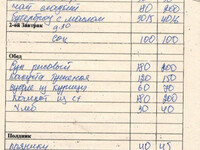 чай сладкий 180 200
бутерброд с маслом 30/5 40/6
2-ой Завтрак
сок 100 100
Обед
Суп рисовый 180 200
капуста тушеная 120 150
из курицы 60 70
Компот из с/ф 180 200
Хлеб 30 40
Полдник
пряники 40 45